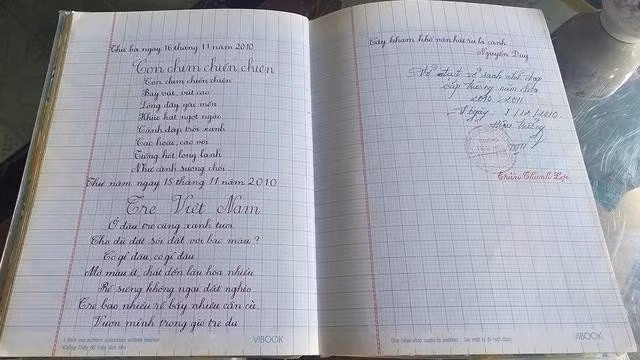 Thứ ba ngày 16 tháng 11 năm 2010
Con chim chiền chiện
Con chim chiền chiện
Bay vút, vút cao
Lòng đầy yêu mến
Khúc hát ngọt ngào
Cánh đập trời xanh
Cao hoài, cao vợi
Tiếng hót long lanh
Như cành sương chói
Thứ năm ngày 18 tháng 11 năm 2010
Tre Việt Nam
Ở đâu tre cũng xanh tươi
Cho dù đất sỏi đất vôi bạc màu?
Có gì đâu, có gì đâu
Mỡ màu ít, chắt dồn lâu hoá nhiều
Rễ siêng không ngại đất nghèo
Tre bao nhiêu rễ bấy nhiêu cần cù
Vươn mình trong gió tre đu
VIBOOK
Cây kham khổ vẫn hát ru lá cành
Nguyễn Duy
Vở đạt vở sạch chữ đẹp
cấp trường năm học
2010 - 2011
Ngày 1/12/2010
Hiệu trưởng
Trần Thanh Lợi
VIBOOK